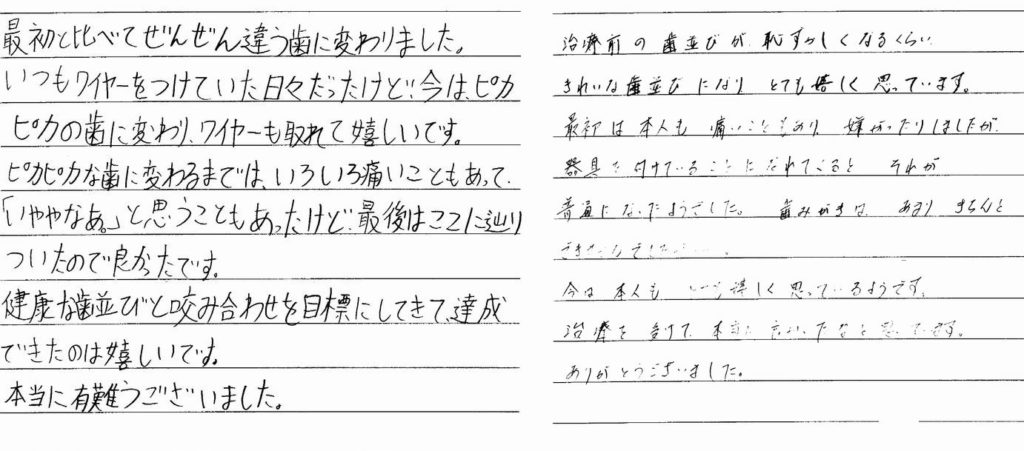 最初と比べてぜんぜん違う歯に変わりました。
いつもワイヤーをつけていた日々だったけど!!今は、ピカ
ピカの歯に変わり、ワイヤーも取れて嬉しいです。
ピカピカな歯に変わるまでは、いろいろ痛いこともあって、
「いややなあ。」と思うこともあったけど!!最後はここに辿り
ついたので良かったです。
健康な歯並びと咬み合わせを目標にしてきて、達成
できたのは嬉しいです。
本当に有難うございました。
治療前の歯並びが恥ずかしくなるくらい
きれいな歯並びになり とても嬉しく思っています。
最初は本人も痛いこともあり 嫌がったりしましたが、
器具を付けていることになれてくると それが
普通になったようでした。 歯みがきは あまり きちんと
今は本人も とても嬉しく思っているようです。
治療を受けて 本当に
ありがとうございました。